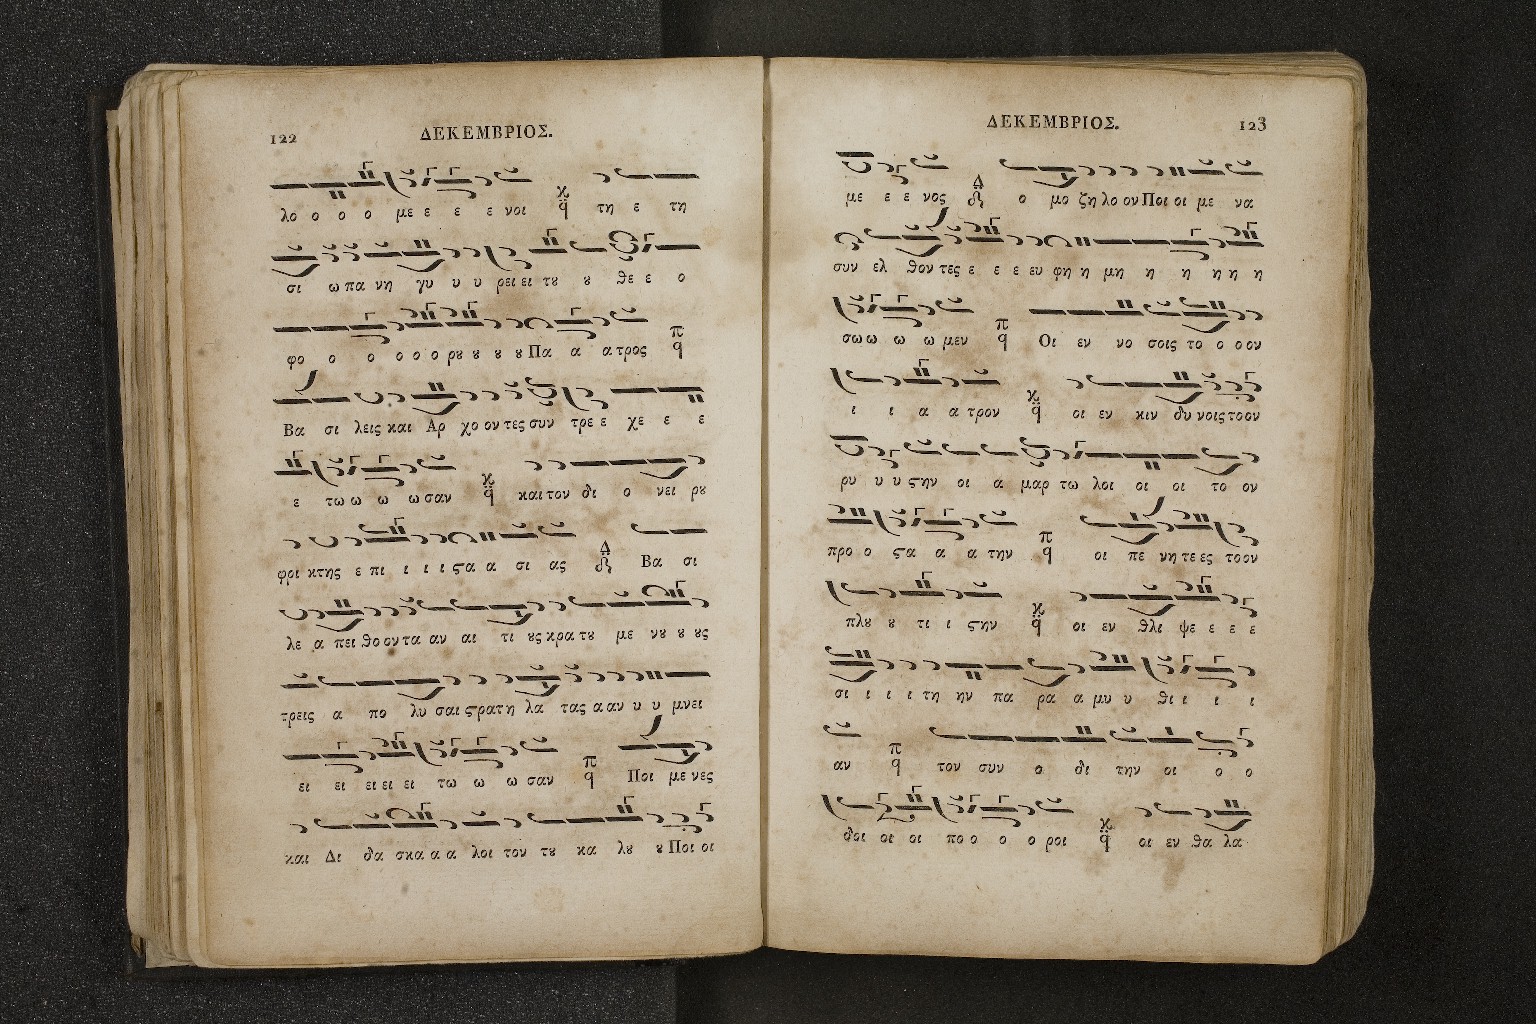 122
ΔΕΚΕΜΒΡΙΟΣ.
λο ο ο ο με ε ε ε νοι τη ε τη
σι ω πα νη γυ υ υ ρει ει τȣ ȣ θε ε ο
φο ο ο ο ο ο ρȣ ȣ ȣ ȣ Πα α α τρος
Βα σι λεις και Αρ χο ον τες συν τρε ε χε ε ε
ε τω ω ω ω σαν και τον δι ο νει ρȣ
φρι κτης ε πι ι ι ι ϛα α σι ας Βα σι
λε α πει θο ον τα αν αι τι ȣς κρα τȣ με νȣ ȣ ȣς
τρεις α πο λυ σαι ϛρατ η λα τας α αν υ υ μνει
ει ει ει ει ει τω ω ω σαν Ποι με νες
και Δι δα σκα α α λοι τον τȣ κα λȣ ȣ Ποι οι
ΔΕΚΕΜΒΡΙΟΣ.
123
με ε ε νος ο μο ζη λο ον Ποι οι με να
συν ελ θον τες ε ε ε ευ φη η μη η η η η η
σω ω ω ω μεν Οι εν νο σοις το ο ο ον
ι ι α α τρον οι εν κιν δυ νοις το ον
ρυ υ υ ϛην οι α μαρ τω λοι οι οι το ον
προ ο ϛα α α την οι πε νη τε ες το ον
πλȣ ȣ τι ι ϛην οι εν θλι ψε ε ε ε
σι ι ι ι τη ην πα ρα α μυ υ θι ι ι ι
αν τον συν ο δι την οι ο ο
δοι οι οι πο ο ο ο ροι οι εν θα λα